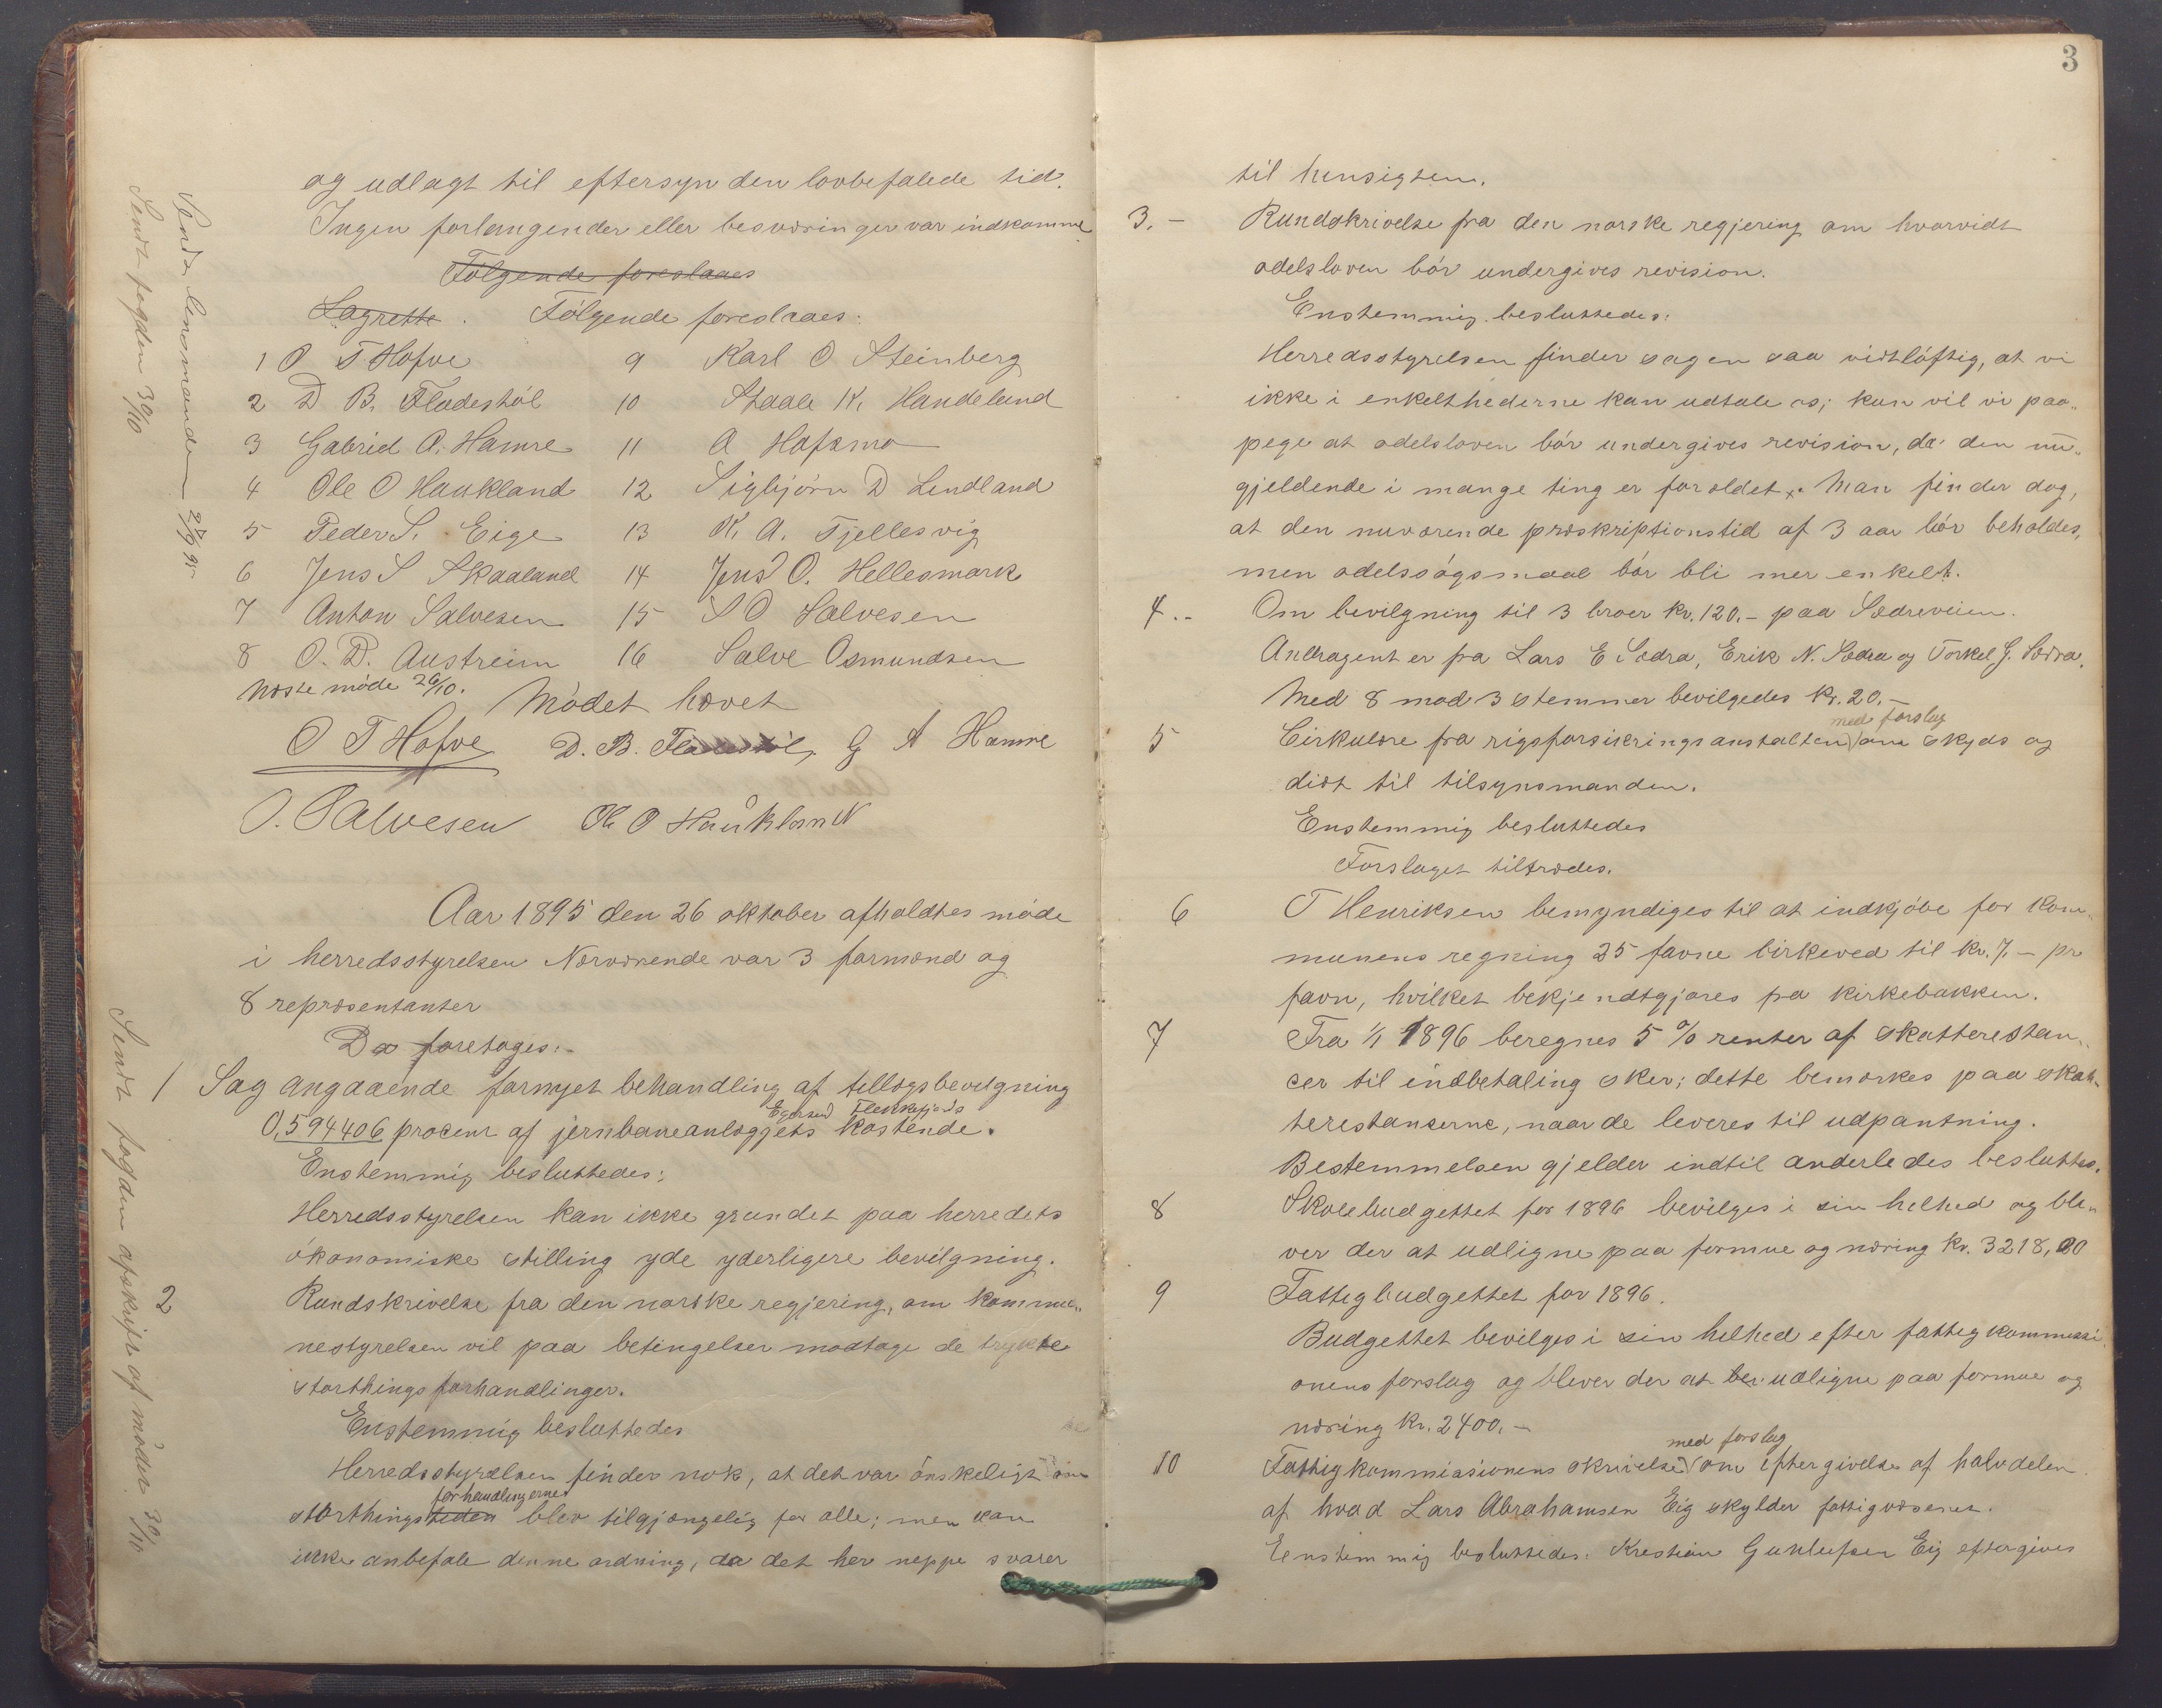 og udlagt til eftersyn den lovbefalede tid.
Ingen forlangender eller besværinger var indkomne
Følgende foreslaaes
Lagrette. Følgende foreslaaes:
1 O T Hofve
2 D B. Fladestøl
3 Gabriel A. Hamre
4 Ole O Haukland
5 Peder S. Eige
6 Jens S Skaaland
7 Anton Salvesen
8 O. D. Austreim
9 Karl O Steinberg
10 Staale K. Handeland
11 A Hofsmo
12 Sigbjørn D Lindland
13 K. A. Tjellesvig
14 Jens O. Hellesmark
15 S O Salvesen
16 Salve Osmundsen
Næste møde 26/10.
Mødet hævet
O T Hofve D. B. Fladestøl, G A Hamre
O. Salvesen Ole O Haukland
Sendt lensmanden 27/9 95
Sendt fogden 30/10
Aar 1895 den 26 oktober afholdtes møde
i herredsstyrelsen Nærværende var 3 formænd og
8 repræsentanter
Da foretages:-
1 Sag angaaende fornyet behandling af tillægsbevilgning
Egersund Flekkefjords
0,594406 procent af jernbaneanlæggets kostende.
Enstemmig besluttedes:
Herredsstyrelsen kan ikke grundet paa herredets
økonomiske stilling yde yderligere bevilgning.
2 Rundskrivelse fra den norske regjering, om kommu„
nestyrelsen vil paa betingelser modtage de trykte
storthings forhandlinger.
Enstemmig besluttedes
Herredsstyrelsen finder nok, at det var ønskeligt om
forhandlingerne
storthingstiden blev tilgjængelig for alle; men kan
ikke anbefale denne ordning, da det her neppe svarer
Sendt fogden afskrift af mødet 30/10
3
til hensigten.
3. - Rundskrivelse fra den norske regjering om hvorvidt
odelsloven bør undergives revision.
Enstemmig besluttedes:
Herredsstyrelsen finder sagen saa vidtløftig, at vi
ikke i enkelthederne kan udtale os; kun vil vi paa„
pege at odelsloven bør undergives revision, da den nu„
gjeldende i mange ting er foroldet. Man finder dog,
at den nuværende præskriptionstid af 3 aar bør beholdes,
men odelssøgsmaal bør bli mer enkelt.
4.. Om bevilgning til 3 broer kr. 120.- paa Sædreveien.
Andragent er fra Lars E Sædra, Erik N. Sædra og Torkel G. Sædra.
Med 8 mod 3 stemmer bevilgedes kr. 20.-
med forslag
5 Cirkulære fra rigsforsikringsanstalten om skyds og
diæt til tilsynsmanden.
Enstemmig besluttedes
Forslaget tiltrædes.
6 T Henriksen bemyndiges til at indkjøbe for kom„
munens regning 25 favne birkeved til kr. 7.- pr
favn, hvilket bekjendtgjøres pa kirkebakken.
7 Fra 1/1 1896 beregnes 5 % renter af skatterestan„
cer til indbetaling sker; dette bemærkes paa skat„
terestanserne, naar de leveres til udpantning.
Bestemmelsen gjelder indtil anderledes besluttes.
8 Skolebudgettet for 1896 bevilges i sin helhed og ble„
ver der at udligne paa formue og næring kr. 3218,00
9 Fattigbudgettet for 1896.
Budgettet bevilges i sin helhed efter fattigkommissi
onens forslag og blever der at be udligne paa formue og
næring kr. 2400.-
med forslag
10 Fattigkommissionens skrivelse om eftergivelse af halvdelen
af hvad Lars Abrahamsen Eig skylder fattigvæsenet.
Eenstemmig besluttedes: Kristian Gunlufsen Eig eftergives